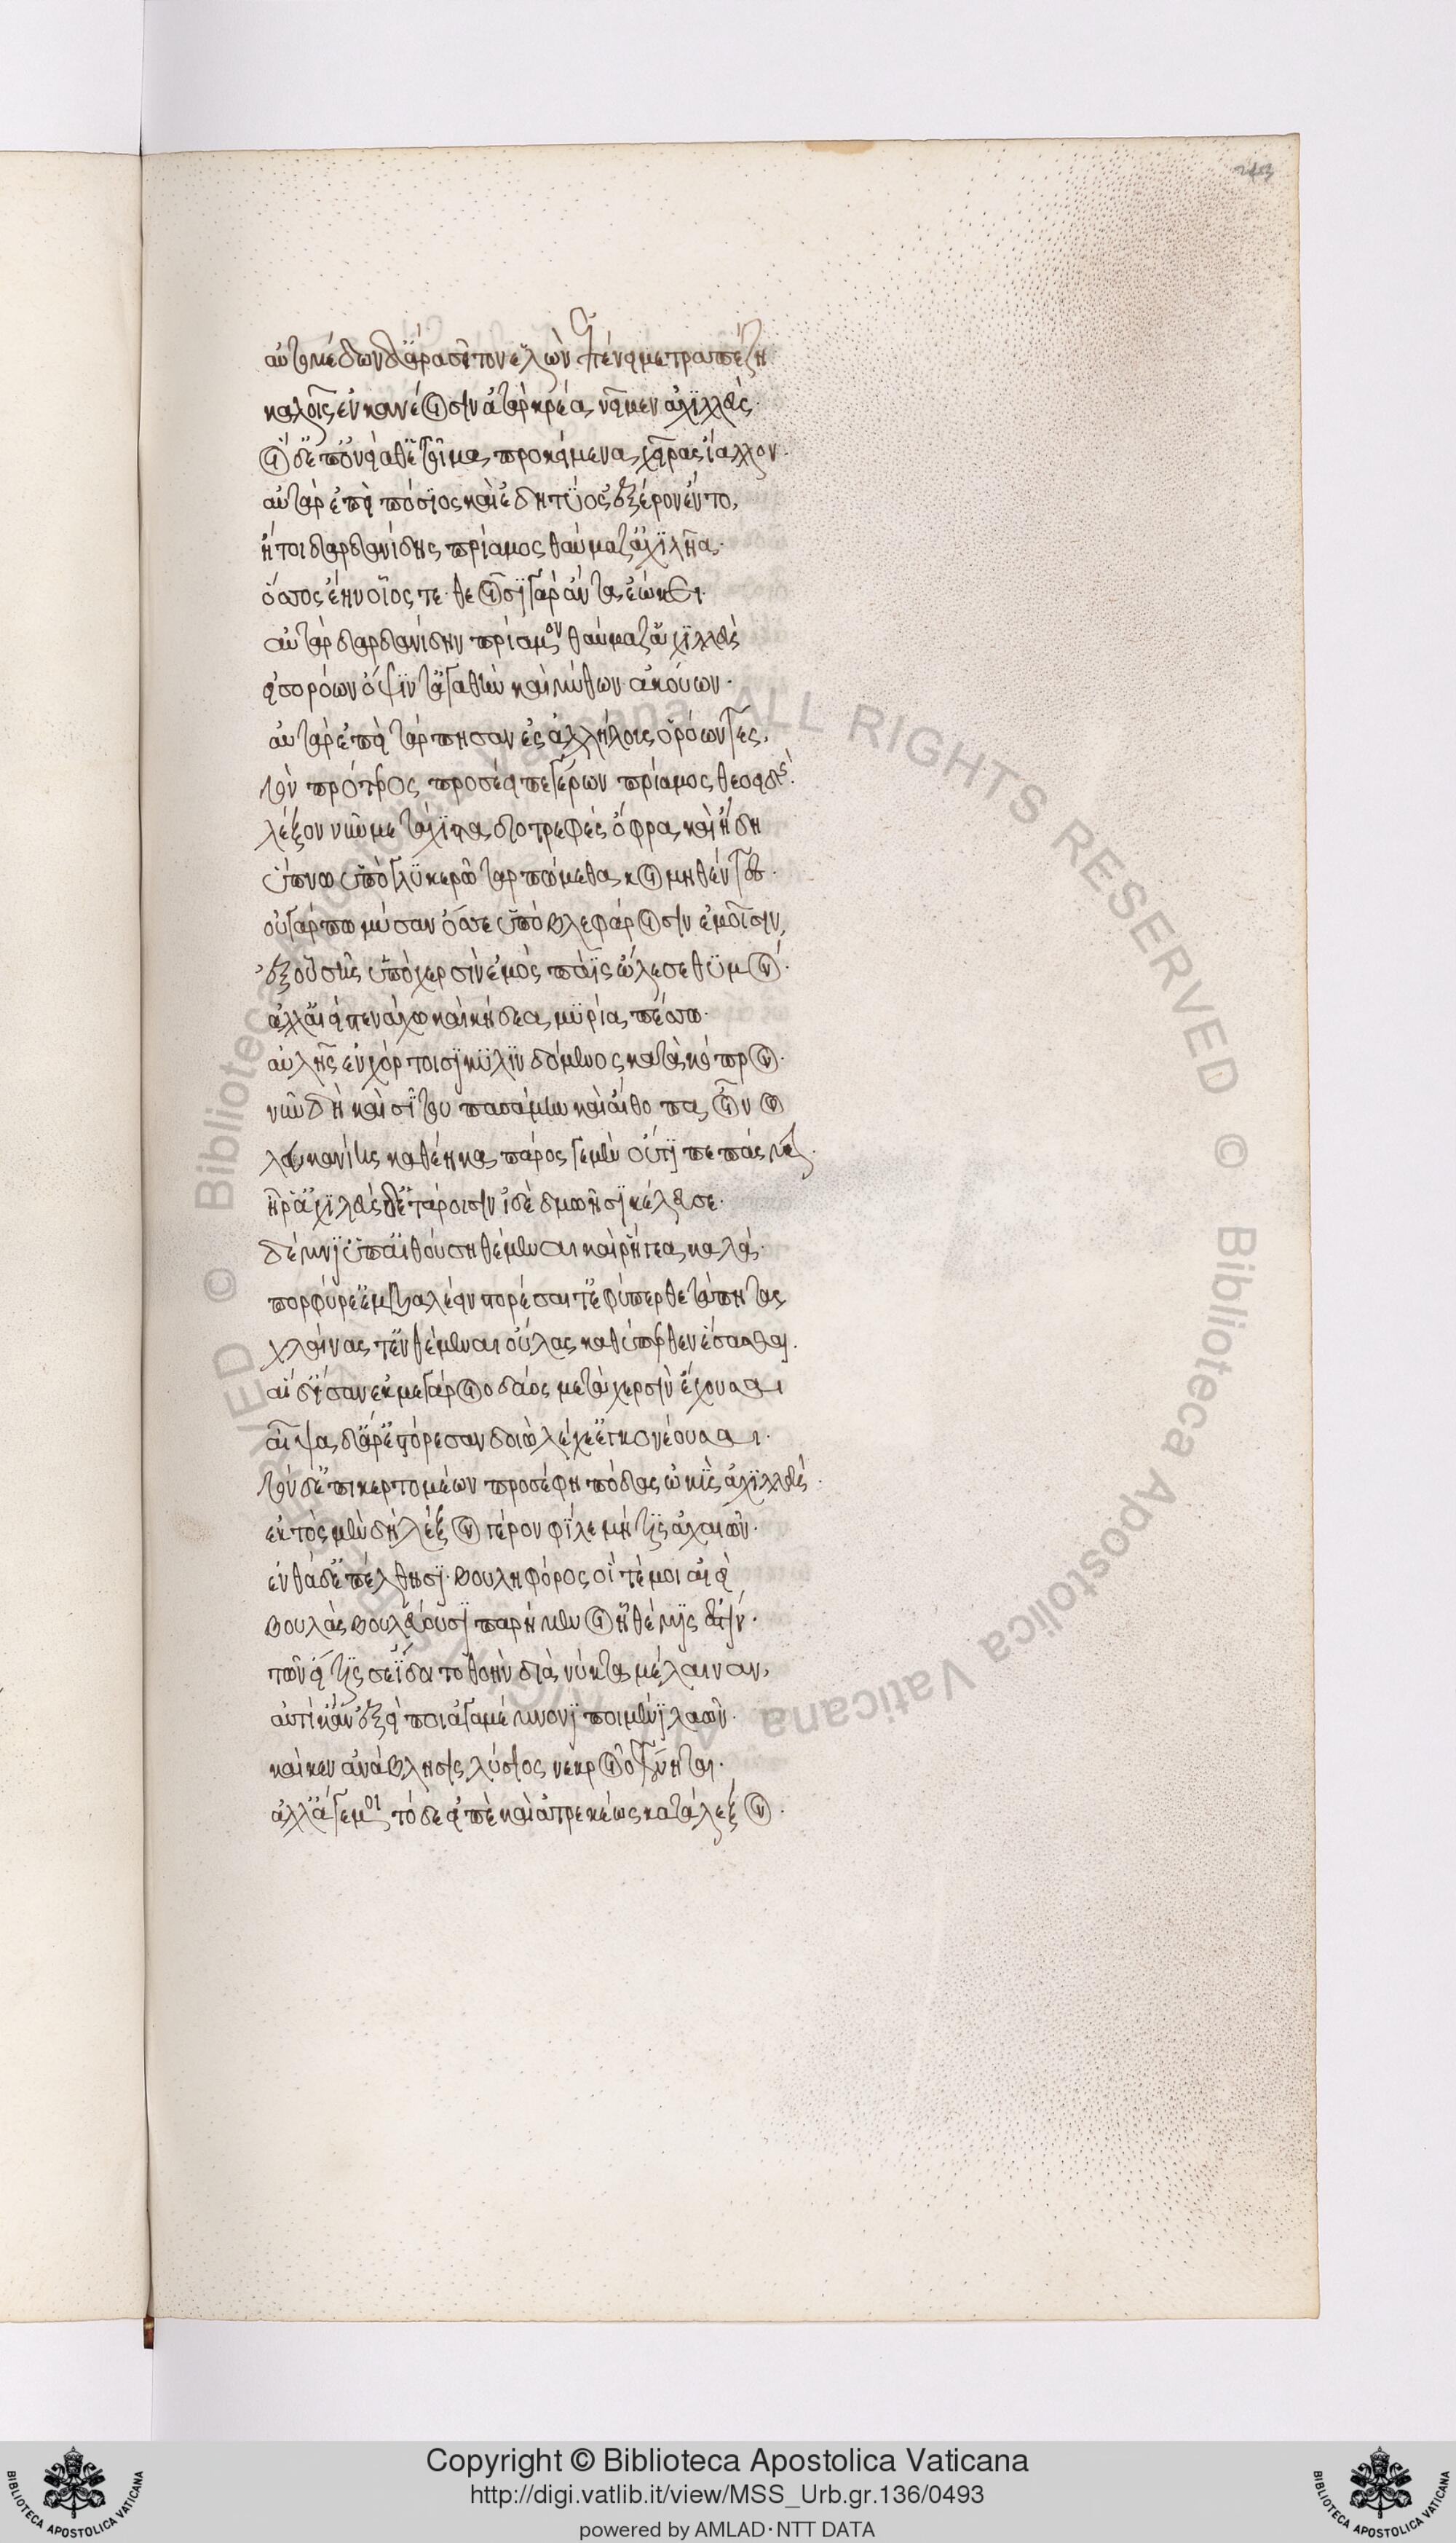 243
αὐτομέδων δ' ἄρα σῖτον ἑλὼν ἐπένειμε τραπέζῃ
καλοῖς ἐν κανέοισιν ἀτὰρ κρέα νεῖμεν ἀχιλλεὺς·
οἱ δ' ἐπ' ὀνείαθ' ἑτοῖμα προκείμενα χεῖρας ἴαλλον·
αὐτὰρ ἐπεὶ πόσιος καὶ ἐδητύος ἐξ ἔρον ἕντο,
ἤτοι δαρδανίδης πρίαμος θαύμαζ' ἀχιλῆα·
ὅσσος ἔην οἷός τε· θεοῖσι γὰρ ἄντα ἐῴκει·
αὐτὰρ δαρδανίδην πρίαμον θαύμαζ' ἀχιλλεὺς
εἰσορόων ὄψιν τ' ἀγαθὴν καὶ μύθων ἀκούων·
αὐτὰρ ἐπεὶ τάρπησαν ἐς ἀλλήλους ὁρόωντες,
τὸν πρότερος προσέειπε γέρων πρίαμος θεοειδὴς·
λέξον νῦν με τάχιστα διοτρεφὲς ὄφρα καὶ ἤδη
ὕπνῳ ὑπὸ γλυκερῷ ταρπώμεθα κοιμηθέντες·
οὐ γάρ πω μύσαν ὄσσε ὑπὸ βλεφάροισιν ἐμοῖσιν,
ἐξ οὗ σῇς ὑπὸ χερσὶν ἐμὸς πάϊς ὤλεσε θυμόν·
ἀλλ' αἰεὶ στενάχω καὶ κήδεα μυρία πέσσω·
αὐλῆς ἐν χόρτοισι κυλινδόμενος κατὰ κόπρον·
νῦν δὴ καὶ σίτου πασάμην καὶ αἴθοπα οἶνον
λαυκανίης καθέηκα πάρος γε μὲν οὔτι πεπάσμην·
ἦ ῥ' ἀχιλεὺς δ' ἑτάροισιν ἰδὲ δμωῇσι κέλευσε·
δέμνι' ὑπ' αἰθούσῃ θέμεναι καὶ ῥήγεα καλά·
πορφύρε' ἐμβαλέειν στορέσαι τ' ἐφύπερθε τάπητας
χλαίνας τ' ἐνθέμεναι οὔλας καθύπερθεν ἕσασθαι·
αἱ δ' ἴσαν ἐκ μεγάροιο δάος μετὰ χερσὶν ἔχουσαι
αἶψα δ' ἄρ' ἐστόρεσαν δοιὼ λέχε' ἐγκονέουσαι·
τὸν δ' ἐπικερτομέων προσέφη πόδας ὠκὺς ἀχιλλεύς·
ἐκτὸς μὲν δὴ λέξον γέρον φίλε μή τις ἀχαιῶν·
ἐνθάδ' ἐπέλθησι· βουληφόρος οἵ τέ μοι αἰεὶ
βουλὰς βουλεύουσι παρήμενοι ἣ θέμις ἐστίν·
τῶν εἴ τίς σε ἴδοιτο θοὴν διὰ νύκτα μέλαιναν,
αὐτίκ' ἂν ἐξείποι ἀγαμέμνονι ποιμένι λαῶν·
καί κεν ἀνάβλησις λύσιος νεκροῖο γένηται·
ἀλλ' ἄγε μοι τόδε εἰπὲ καὶ ἀτρεκέως κατάλεξον·
Copyright © Biblioteca Apostolica Vaticana
http://digi.vatlib.it/view/MSS_Urb.gr.136/0493
powered by AMLAD·NTT DATA